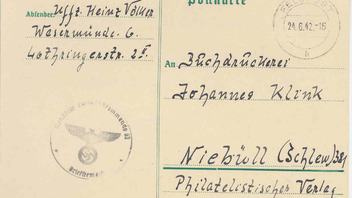 Postkarte
Absender: Uffz. Heinz Völker
Wesermünde-G.
Lothringerstr. 25
24.6.42.-16
h
An Buchdruckerei
Johannes Klink
Niebüll (Schlesw)
Philatelistischer Verlag